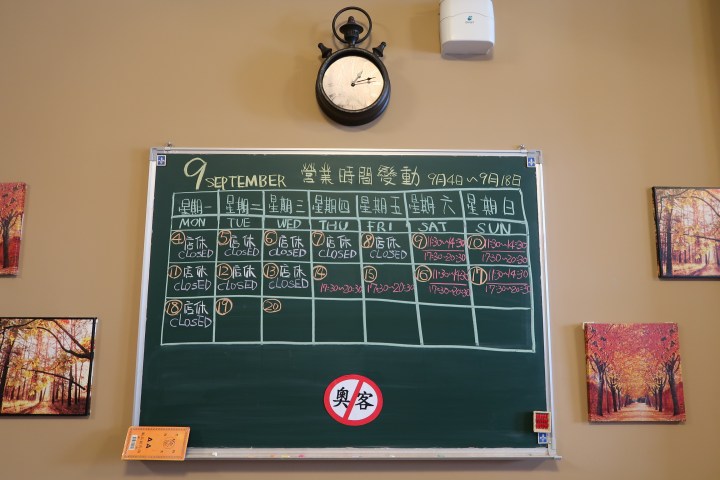 9 SEPTEMBER 營業時間變動 9月4日~9月18日
星期一 星期二 星期三 星期四 星期五 星期六 星期日
MON TUE WED THU FRI SAT SUN
④店休 ⑤店休 ⑥店休 ⑦店休 ⑧店休 ⑨11:30~14:30 ⑩11:30~14:30
CLOSED CLOSED CLOSED CLOSED CLOSED 17:30~20:30 17:30~20:30
⑪店休 ⑫店休 ⑬店休 ⑭ ⑮ ⑯11:30~14:30 ⑰11:30~14:30
CLOSED CLOSED CLOSED 17:30~20:30 17:30~20:30 17:30~20:30 17:30~20:30
⑱店休 ⑲ ⑳
CLOSED
奧客
AA